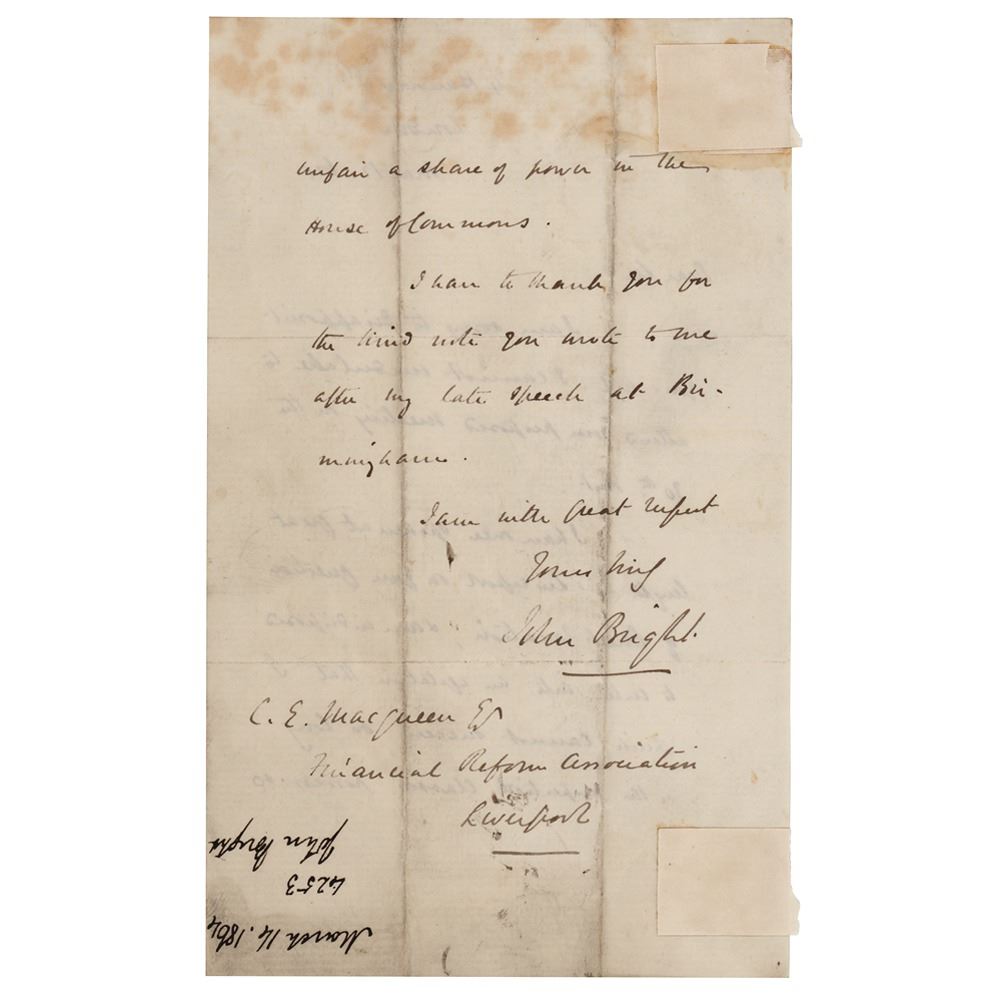 unfair a share of power in the
House of Commons.
I have to thank you for
the kind note you wrote to me
after my late speech at Bir-
mingham.
I am with great respect
Yours truly
John Bright.
C. E. Macqueen Esq
Financial Reform Association
Liverpool
John Bright
4253
March 14. 1864